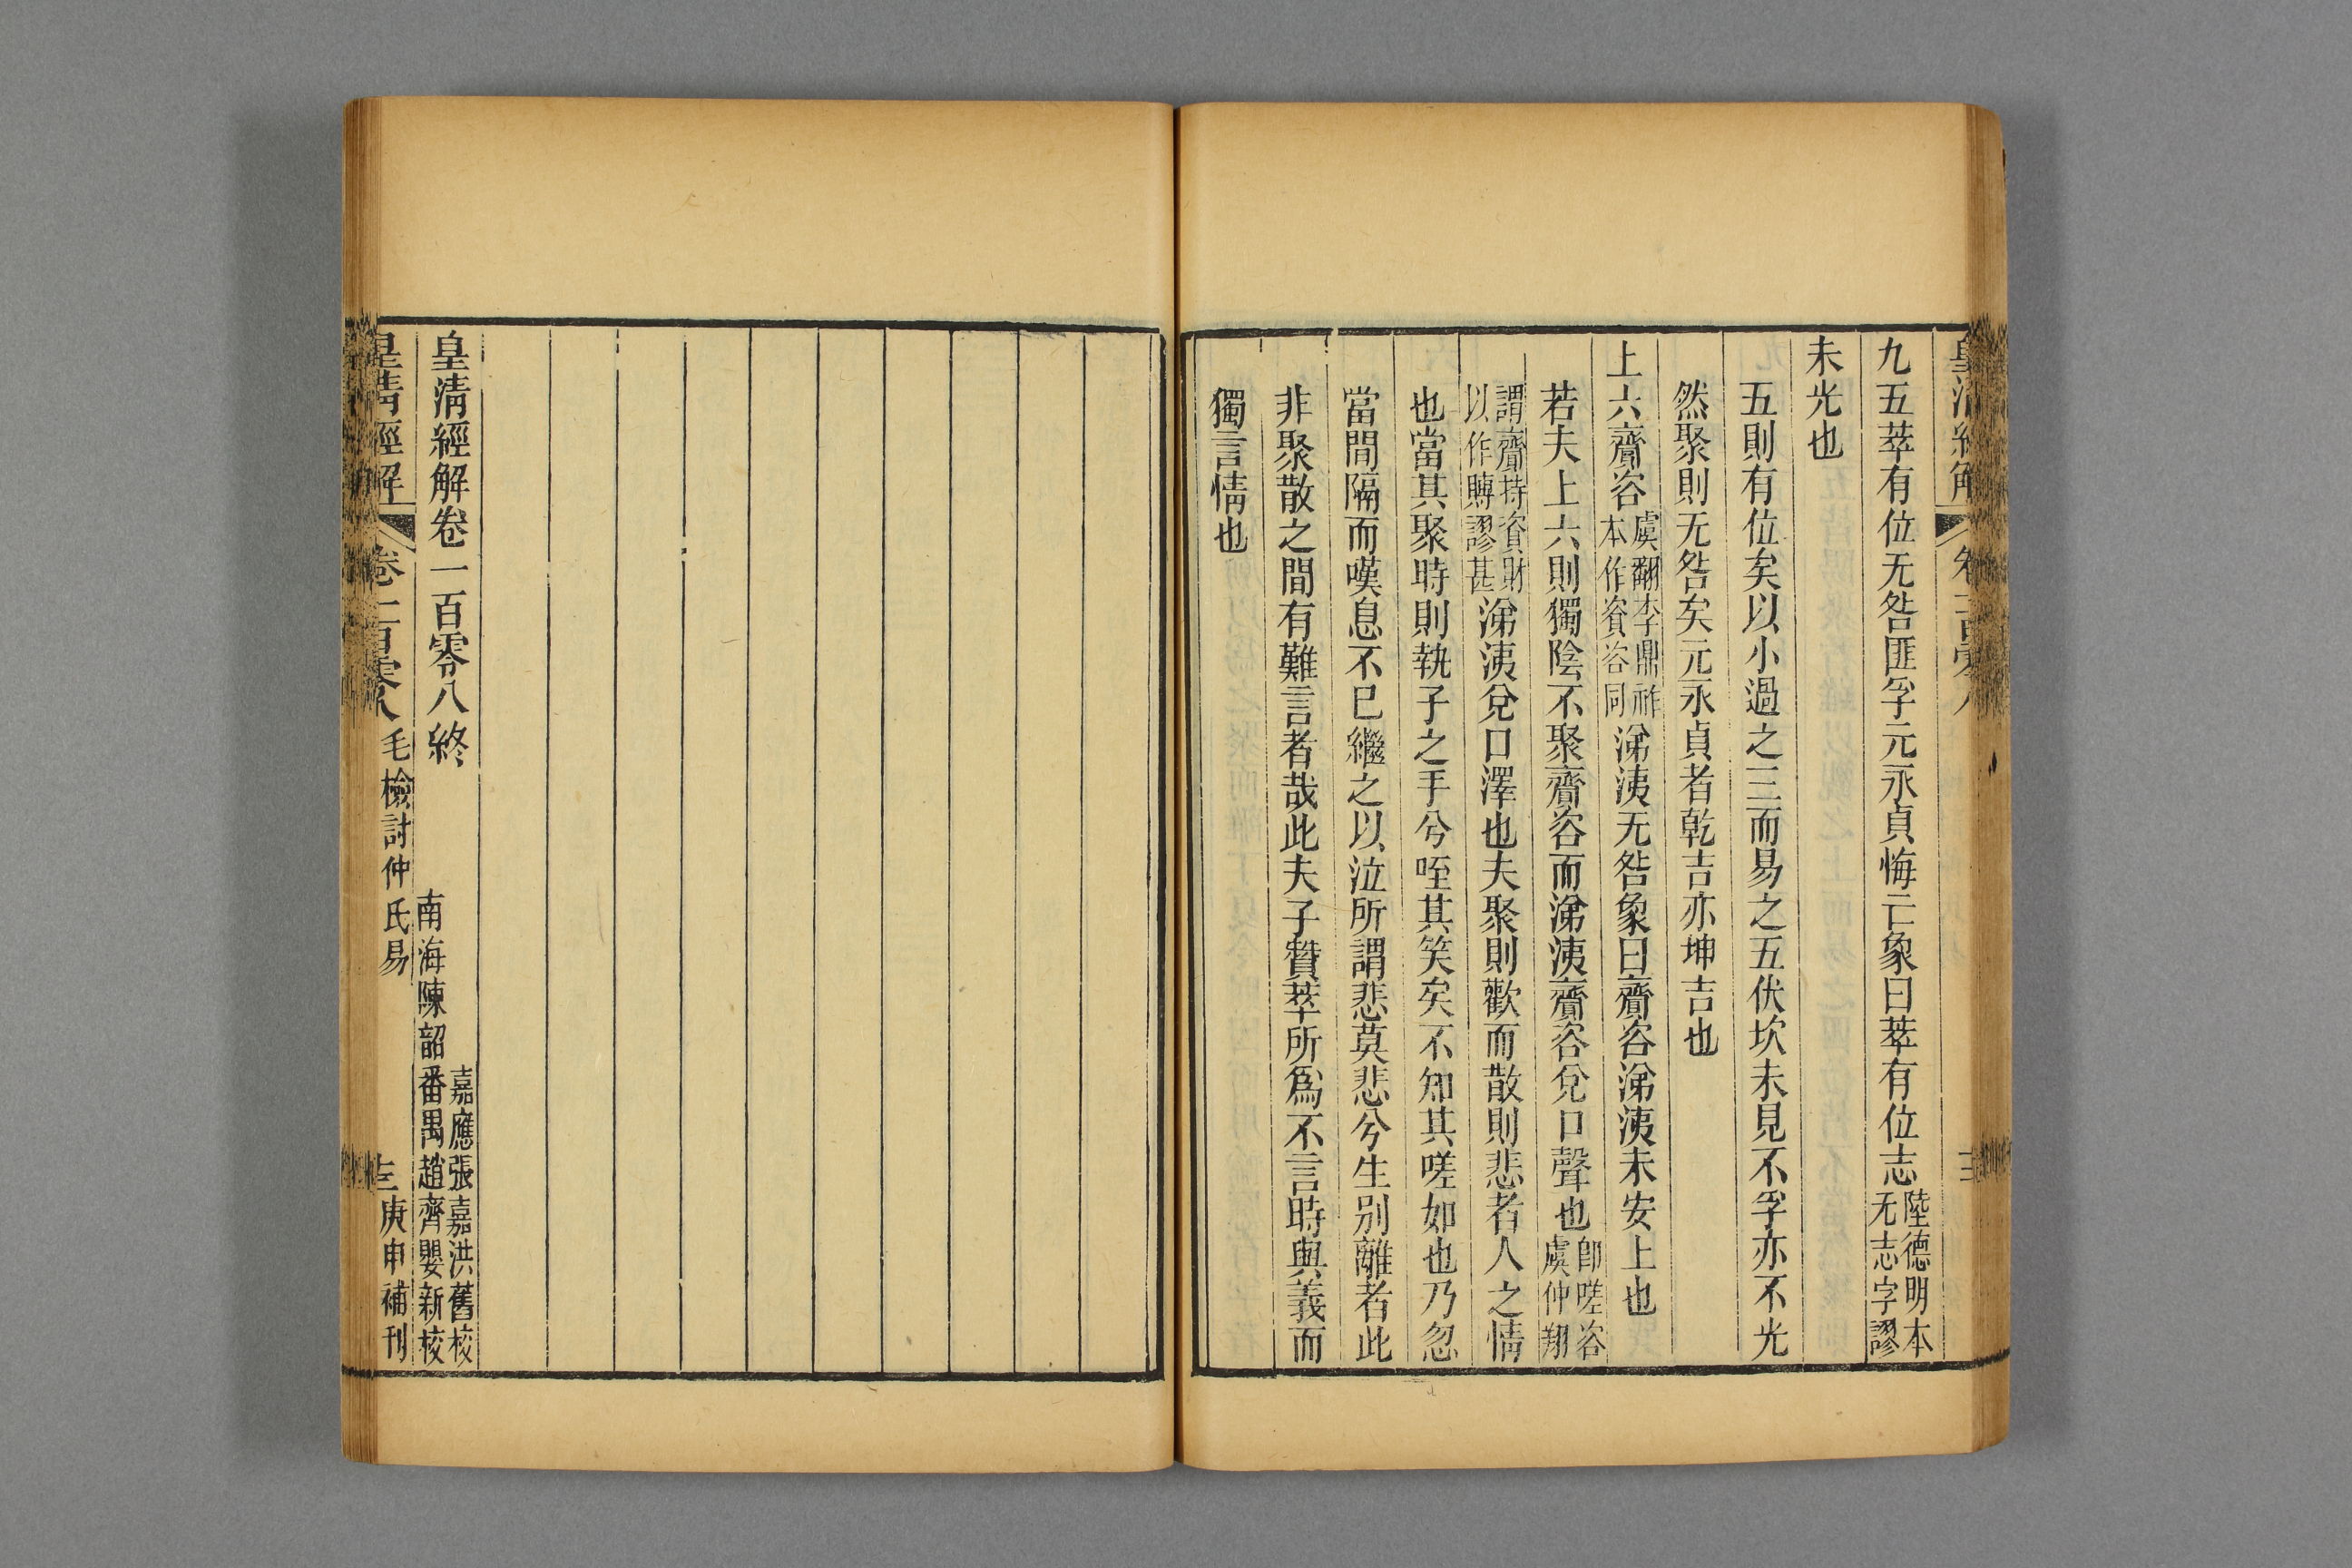 九五萃有位无咎匪孚元永貞悔亡象曰萃有位志陸德明本无志字謬
未光也
五則有位矣以小過之三而易之五伏坎未見不孚亦不光
然聚則无咎矣元永貞者乾吉亦坤吉也
上六齎咨虞翻李鼎祚本作資咨同涕洟无咎象曰齎咨涕洟未安上也
若夫上六則獨陰不聚齎咨而涕洟齎咨兌口聲也卽嗟咨虞仲翔
謂齎持資財以作賻謬甚涕洟兌口澤也夫聚則歡而散則悲者人之情
也當其聚時則執子之手兮咥其笑矣不知其嗟如也乃忽
當間隔而嘆息不已繼之以泣所謂悲莫悲兮生別離者此
非聚散之間有難言者哉此夫子贊萃所爲不言時與義而
獨言情也
皇清經解卷一百零八終
嘉應張嘉洪舊校
南海陳韶番禺趙齊嬰新校
皇清經解 卷一百零八 毛檢討仲氏易 庚申補刊